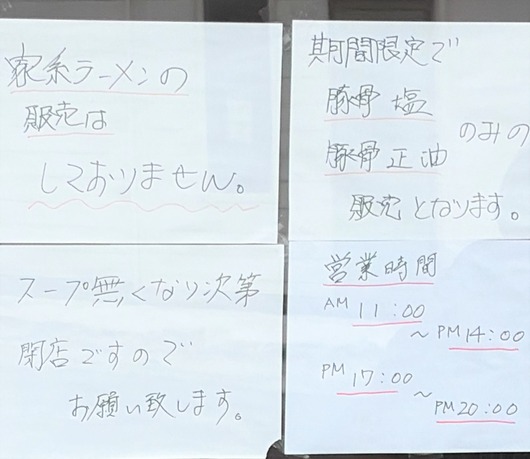 家系ラーメンの
販売は
しておりません。
期間限定で
豚骨 塩
豚骨 正油
のみの
販売となります。
スープ無くなり次第
閉店ですので
お願い致します。
営業時間
AM 11:00
～PM14:00
PM 17:00
～
PM20:00